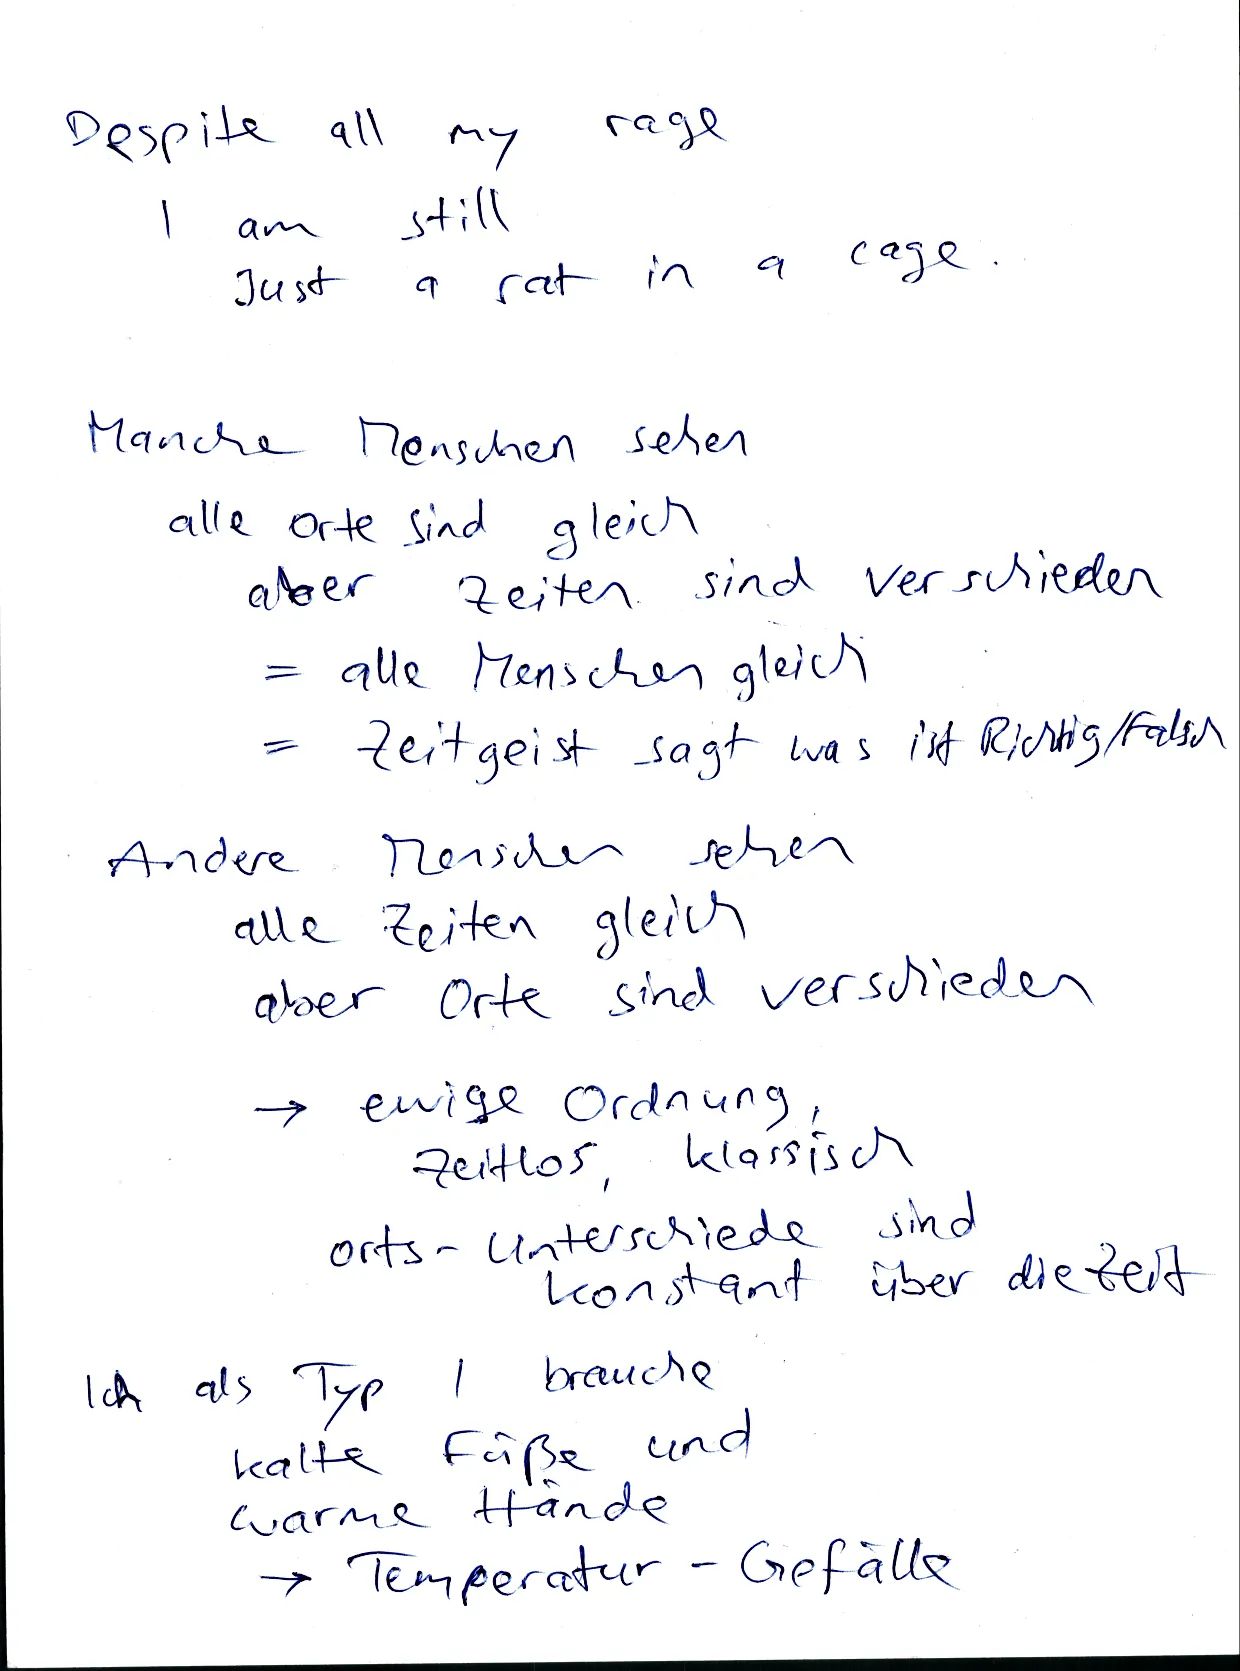 Despite all my rage
I am still
Just a rat in a cage.
Manche Menschen sehen
alle Orte sind gleich
aber Zeiten sind verschieden
= alle Menschen gleich
= Zeitgeist sagt was ist Richtig/Falsch
Andere Menschen sehen
alle Zeiten gleich
aber Orte sind verschieden
→ ewige Ordnung,
zeitlos, klassisch
orts-unterschiede sind
konstant über die Zeit
Ich als Typ 1 brauche
kalte Füße und
warme Hände
→ Temperatur-Gefälle